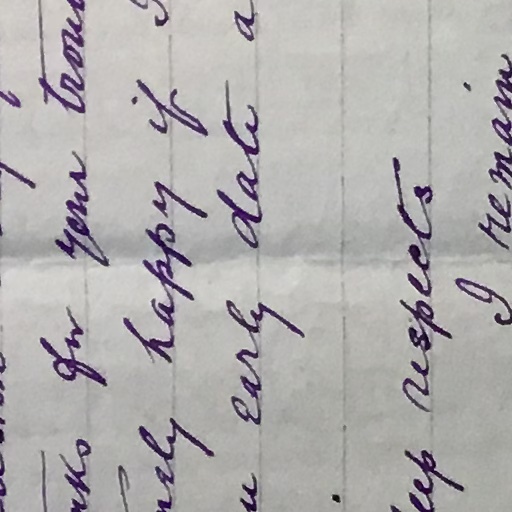 nks for your trou
nely happy if I
u early date a
.
eep respects
I remain